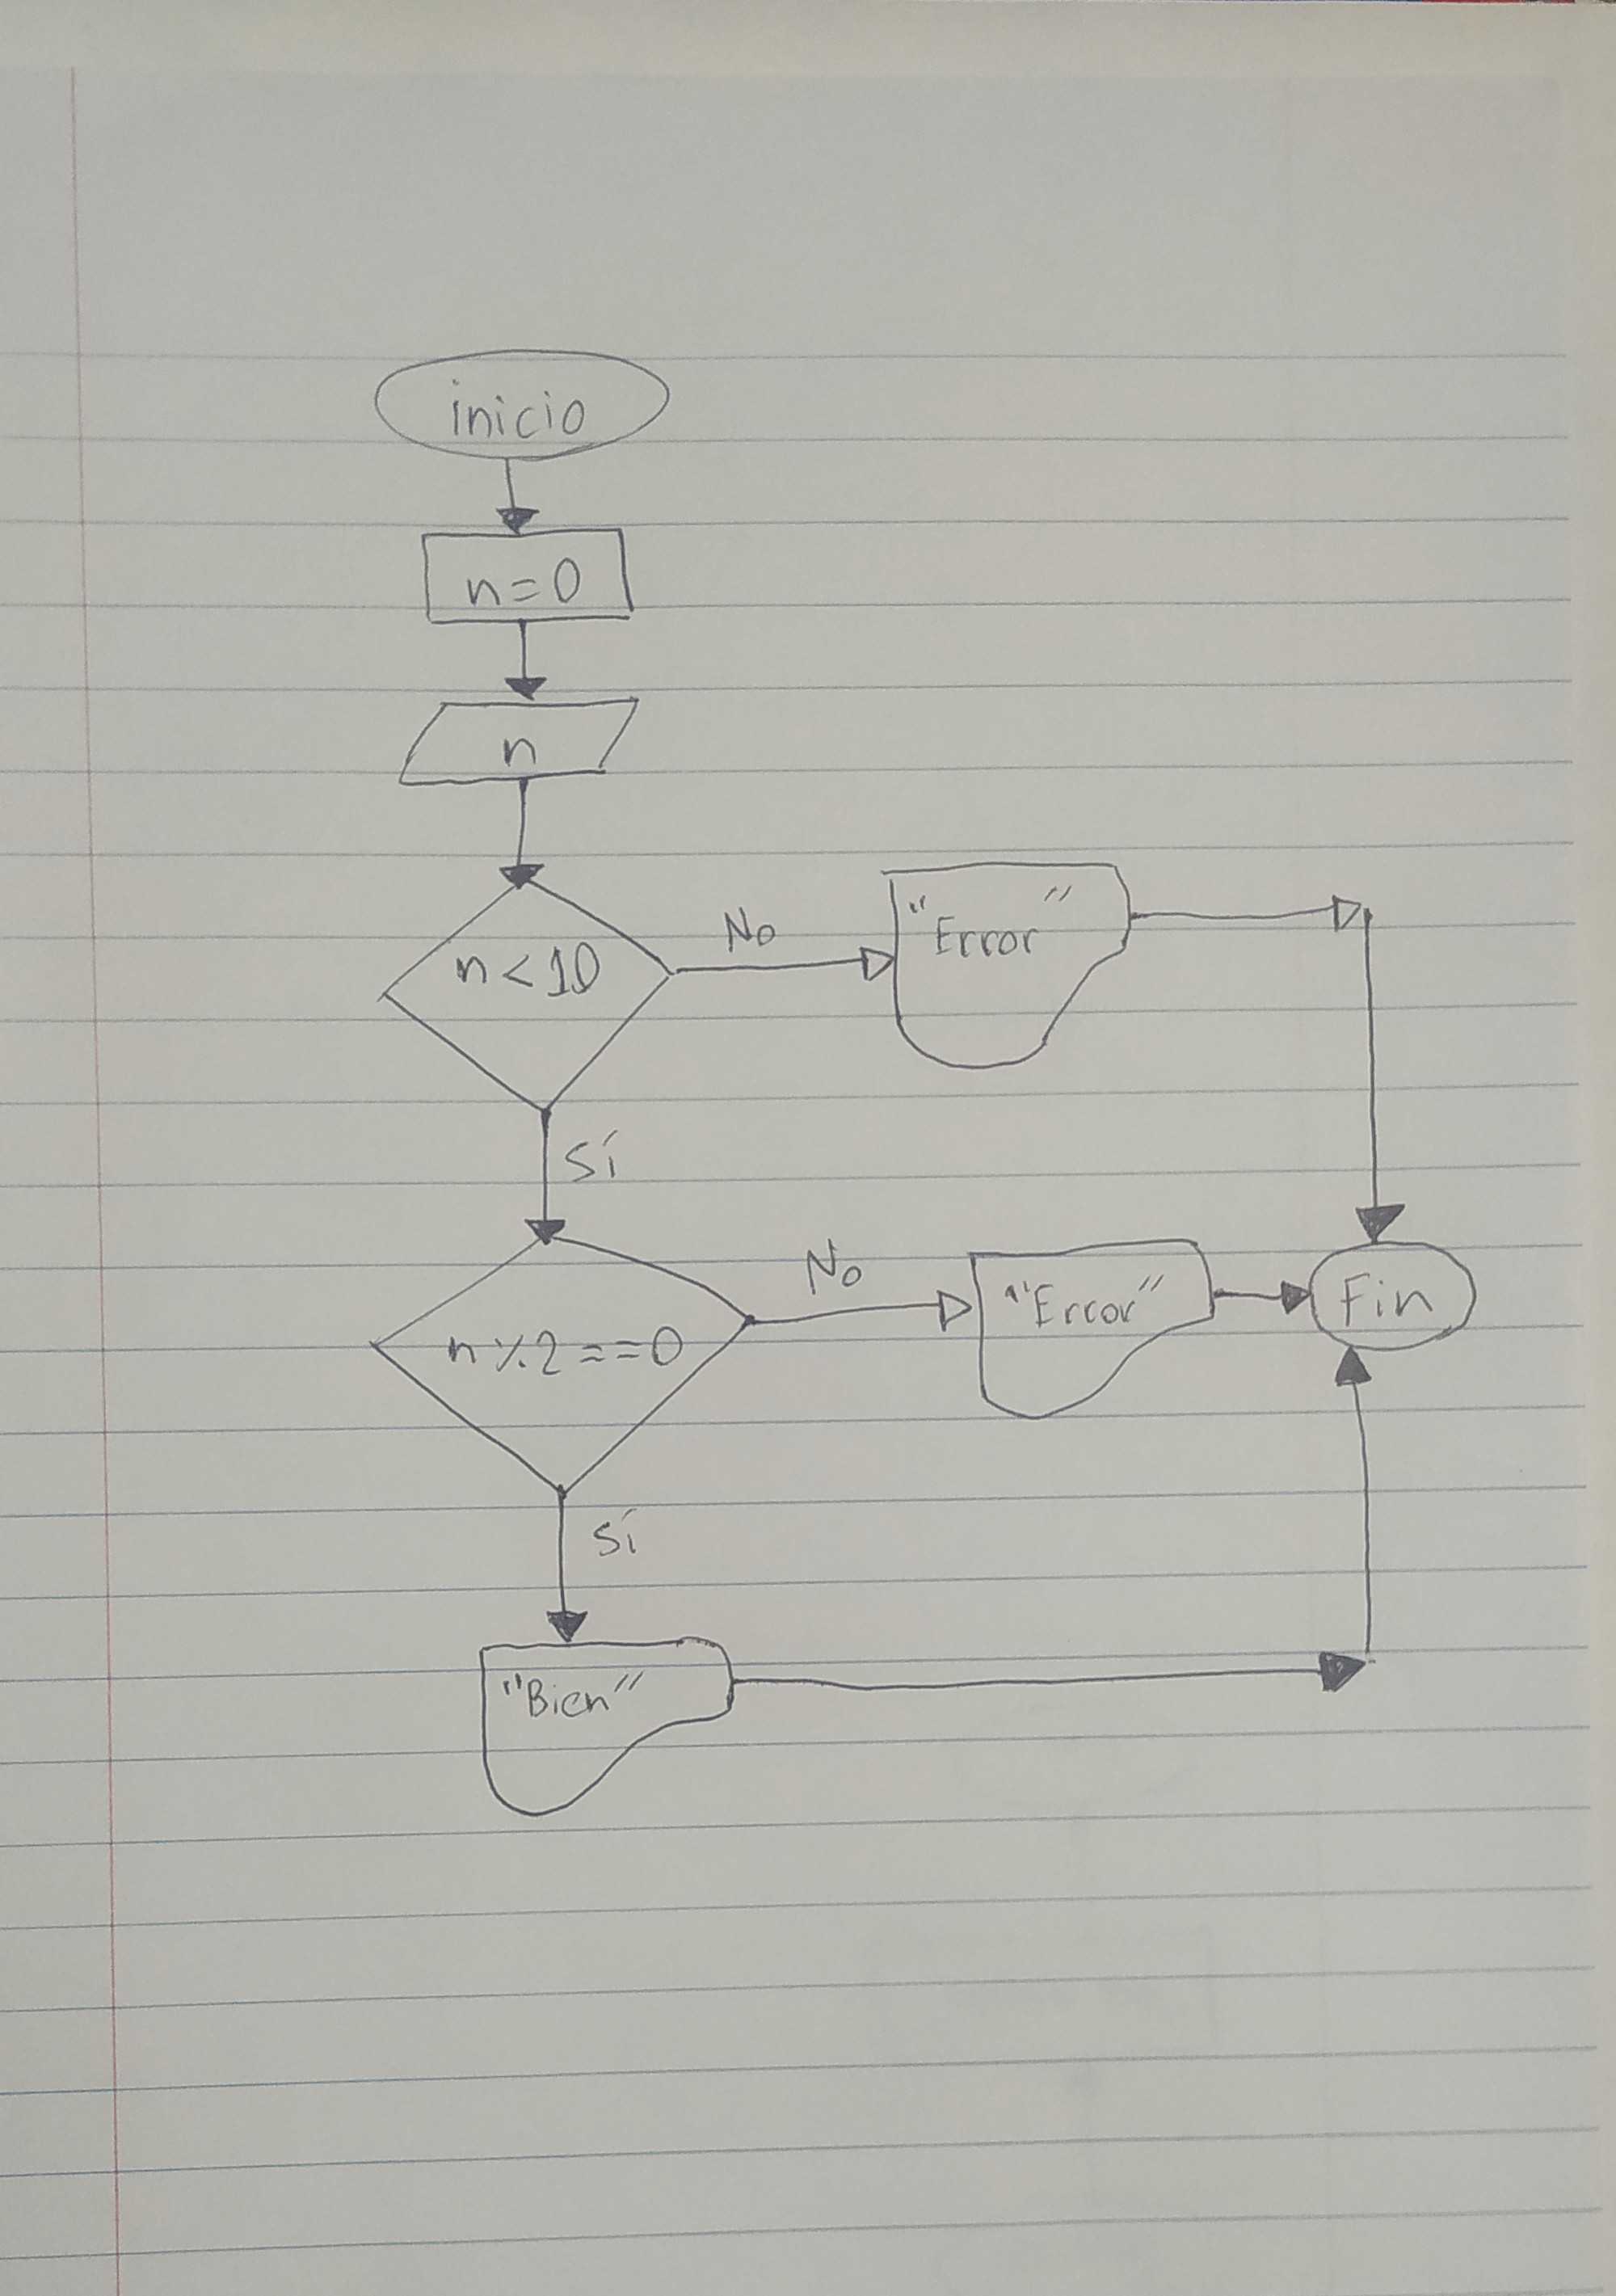 inicio
n=0
n
n<10
No
"Error"
Sí
n%2==0
No
"Error"
Fin
Sí
"Bien"